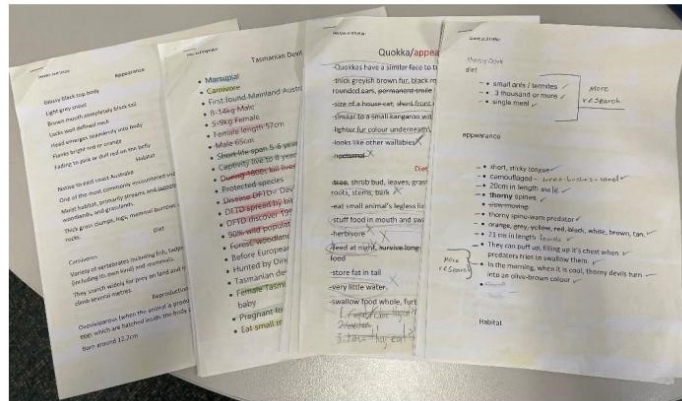 Appearance
Glossy black top body
Light grey snout
Brown mouth completely black tail
Lacks well defined neck
Head emerges seamlessly into body
Flanks bright red or orange
Fading to pink or dull red on the belly
Habitat
Native to east coast Australia
One of the most commonly encountered
Moist habitat, primarily streams and
woodlands, and grasslands.
Thick grass clumps, logs, mammal burrows
rocks.
Diet
Carnivores
Variety of vertebrates including fish,
(including its own kind) and mammals.
They search widely for prey on land and
climb several metres.
Reproduction
Ovoviviparous (when the animal
eggs which are hatched inside the body
Born around 12.2cm
Tasmanian Devil
Marsupial
Carnivore
First found Mainland Austr
8-14kg Male
5-9kg Female
Female length 57cm
Male 65cm
Short life span 5-6 year
Captivity live to 8 year
During 1800s kill
Protected species
Disease DFTD - Dev
DFTD spread by bi
DFTD discover 199
90% wild populat
Forest woodland
Before European
Hunted by Din
Tasmanian de
Female Tasm
baby
Pregnant fo
Eat small
Quokka/appea
-Quokkas have a similar face to
-thick greyish brown fur, black
rounded ears, permanent smile
-size of a house cat, short front
-similar to a small kangaroo
-lighter fur colour underneath
-looks like other wallabies
-nocturnal
Diet
shrub bud, leaves, gras
roots, stems, bark
-eat small animal's legless
-stuff food in mouth and
-herbivore
-feed at night, survive long
food
-store fat in tail
-very little water,
-swallow food whole,
1.
2.
3.
thorny Devil
diet
small ants / termites
3 thousand or more
single meal
more
research
appearance
short, sticky tongue
camouflaged
20cm in length male
thorny spines
slow moving
thorny spins-warn predator
orange, grey, yellow, red, black, white, brown, tan,
21 cm in length female
They can puff up, filling up it's chest when
predators tries to swallow them.
In the morning, when it is cool, thorny devils turn
into an olive-brown colour
more
research
Habitat